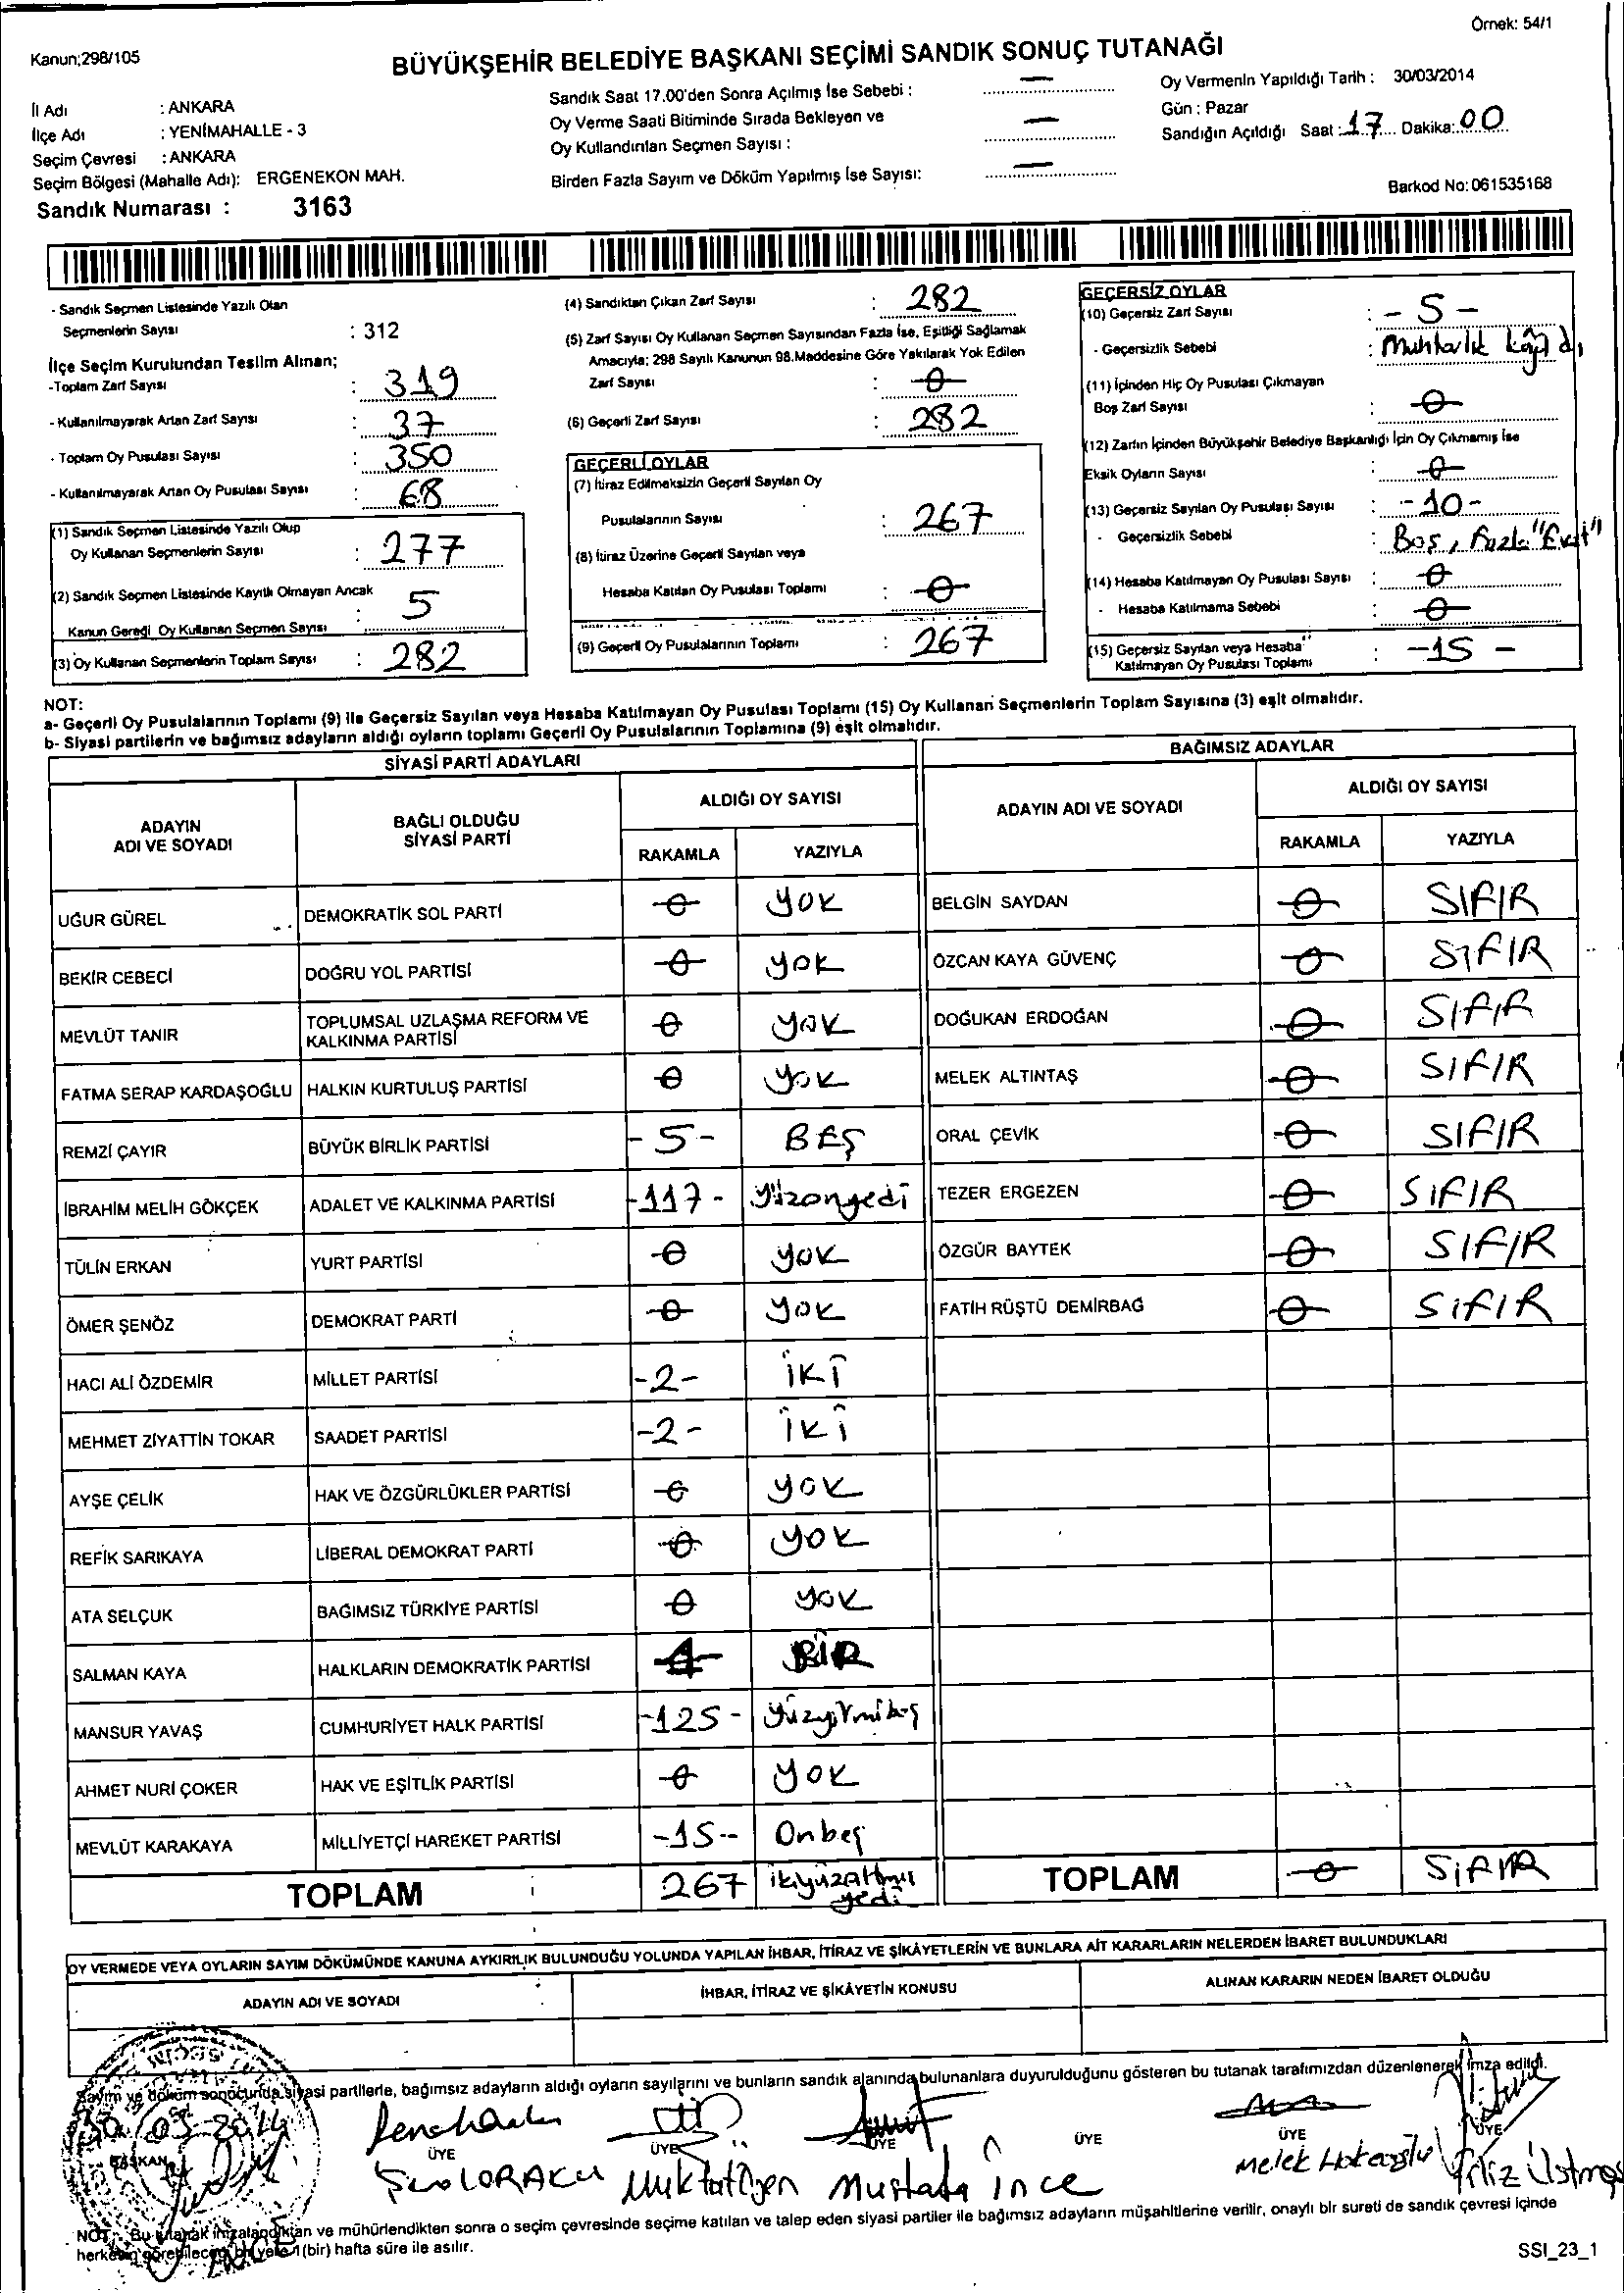 Örnek: 54/1
Kanun;298/105
BÜYÜKŞEHİR BELEDİYE BAŞKANI SEÇİMİ SANDIK SONUÇ TUTANAĞI
İl Adı : ANKARA
İlçe Adı : YENİMAHALLE - 3
Seçim Çevresi : ANKARA
Seçim Bölgesi (Mahalle Adı): ERGENEKON MAH.
Sandık Numarası : 3163
Sandık Saat 17.00'den Sonra Açılmış İse Sebebi : —
Oy Verme Saati Bitiminde Sırada Bekleyen ve
Oy Kullandırılan Seçmen Sayısı : —
Birden Fazla Sayım ve Döküm Yapılmış İse Sayısı: —
Oy Vermenin Yapıldığı Tarih : 30/03/2014
Gün : Pazar
Sandığın Açıldığı Saat : 17 Dakika: 00
Barkod No: 061535168
- Sandık Seçmen Listesinde Yazılı Olan
Seçmenlerin Sayısı : 312
İlçe Seçim Kurulundan Teslim Alınan;
-Toplam Zarf Sayısı : 319
- Kullanılmayarak Artan Zarf Sayısı : 37
- Toplam Oy Pusulası Sayısı : 350
- Kullanılmayarak Artan Oy Pusulası Sayısı : 68
(1) Sandık Seçmen Listesinde Yazılı Olup
Oy Kullanan Seçmenlerin Sayısı : 277
(2) Sandık Seçmen Listesinde Kayıtlı Olmayan Ancak
Kanun Gereği Oy Kullanan Seçmen Sayısı : 5
(3) Oy Kullanan Seçmenlerin Toplam Sayısı : 282
(4) Sandıktan Çıkan Zarf Sayısı : 282
(5) Zarf Sayısı Oy Kullanan Seçmen Sayısından Fazla İse, Eşitliği Sağlamak
Amacıyla; 298 Sayılı Kanunun 98.Maddesine Göre Yakılarak Yok Edilen
Zarf Sayısı : 0
(6) Geçerli Zarf Sayısı : 282
GEÇERLİ OYLAR
(7) İtiraz Edilmeksizin Geçerli Sayılan Oy
Pusulalarının Sayısı : 267
(8) İtiraz Üzerine Geçerli Sayılan veya
Hesaba Katılan Oy Pusulası Toplamı : 0
(9) Geçerli Oy Pusulalarının Toplamı : 267
GEÇERSİZ OYLAR
(10) Geçersiz Zarf Sayısı : - 5 -
- Geçersizlik Sebebi : Muhtarlık kağıdı
(11) İçinden Hiç Oy Pusulası Çıkmayan
Boş Zarf Sayısı : 0
(12) Zarfın İçinden Büyükşehir Belediye Başkanlığı İçin Oy Çıkmamış İse
Eksik Oyların Sayısı : 0
(13) Geçersiz Sayılan Oy Pusulası Sayısı : -10-
- Geçersizlik Sebebi : Boş, Fazla "Evet"
(14) Hesaba Katılmayan Oy Pusulası Sayısı : 0
- Hesaba Katılmama Sebebi : 0
(15) Geçersiz Sayılan veya Hesaba
Katılmayan Oy Pusulası Toplamı : -15 -
NOT:
a- Geçerli Oy Pusulalarının Toplamı (9) ile Geçersiz Sayılan veya Hesaba Katılmayan Oy Pusulası Toplamı (15) Oy Kullanan Seçmenlerin Toplam Sayısına (3) eşit olmalıdır.
b- Siyasi partilerin ve bağımsız adayların aldığı oyların toplamı Geçerli Oy Pusulalarının Toplamına (9) eşit olmalıdır.
SİYASİ PARTİ ADAYLARI
ADAYIN ADI VE SOYADI BAĞLI OLDUĞU SİYASİ PARTİ ALDIĞI OY SAYISI
RAKAMLA YAZIYLA
UĞUR GÜREL DEMOKRATİK SOL PARTİ 0 YOK
BEKİR CEBECİ DOĞRU YOL PARTİSİ 0 YOK
MEVLÜT TANIR TOPLUMSAL UZLAŞMA REFORM VE KALKINMA PARTİSİ 0 YOK
FATMA SERAP KARDAŞOĞLU HALKIN KURTULUŞ PARTİSİ 0 YOK
REMZİ ÇAYIR BÜYÜK BİRLİK PARTİSİ -5- BEŞ
İBRAHİM MELİH GÖKÇEK ADALET VE KALKINMA PARTİSİ -117- Yüzonyedi
TÜLİN ERKAN YURT PARTİSİ 0 YOK
ÖMER ŞENÖZ DEMOKRAT PARTİ 0 YOK
HACI ALİ ÖZDEMİR MİLLET PARTİSİ -2- İKİ
MEHMET ZİYATTİN TOKAR SAADET PARTİSİ -2- İKİ
AYŞE ÇELİK HAK VE ÖZGÜRLÜKLER PARTİSİ 0 YOK
REFİK SARIKAYA LİBERAL DEMOKRAT PARTİ 0 YOK
ATA SELÇUK BAĞIMSIZ TÜRKİYE PARTİSİ 0 YOK
SALMAN KAYA HALKLARIN DEMOKRATİK PARTİSİ 1 BİR
MANSUR YAVAŞ CUMHURİYET HALK PARTİSİ -125- Yüzyirmibeş
AHMET NURİ ÇOKER HAK VE EŞİTLİK PARTİSİ 0 YOK
MEVLÜT KARAKAYA MİLLİYETÇİ HAREKET PARTİSİ -15- Onbeş
TOPLAM 267 ikiyüzaltmış yedi
BAĞIMSIZ ADAYLAR
ADAYIN ADI VE SOYADI ALDIĞI OY SAYISI
RAKAMLA YAZIYLA
BELGİN SAYDAN 0 SIFIR
ÖZCAN KAYA GÜVENÇ 0 SIFIR
DOĞUKAN ERDOĞAN 0 SIFIR
MELEK ALTINTAŞ 0 SIFIR
ORAL ÇEVİK 0 SIFIR
TEZER ERGEZEN 0 SIFIR
ÖZGÜR BAYTEK 0 SIFIR
FATİH RÜŞTÜ DEMİRBAĞ 0 SIFIR
TOPLAM 0 SIFIR
OY VERMEDE VEYA OYLARIN SAYIM DÖKÜMÜNDE KANUNA AYKIRILIK BULUNDUĞU YOLUNDA YAPILAN İHBAR, İTİRAZ VE ŞİKÂYETLERİN VE BUNLARA AİT KARARLARIN NELERDEN İBARET BULUNDUKLARI
ADAYIN ADI VE SOYADI İHBAR, İTİRAZ VE ŞİKÂYETİN KONUSU ALINAN KARARIN NEDEN İBARET OLDUĞU
Sayım ve döküm sonucunda siyasi partilerle, bağımsız adayların aldığı oyların sayılarını ve bunların sandık alanında bulunanlara duyurulduğunu gösteren bu tutanak tarafımızdan düzenlenerek imza edildi.
30 03 2014
BAŞKAN ÜYE ÜYE ÜYE ÜYE ÜYE ÜYE
Mustafa İnce
NOT: Bu tutanak imzalandıktan ve mühürlendikten sonra o seçim çevresinde seçime katılan ve talep eden siyasi partiler ile bağımsız adayların müşahitlerine verilir, onaylı bir sureti de sandık çevresi içinde
herkesin görebileceği bir yere 1 (bir) hafta süre ile asılır.
SSI_23_1